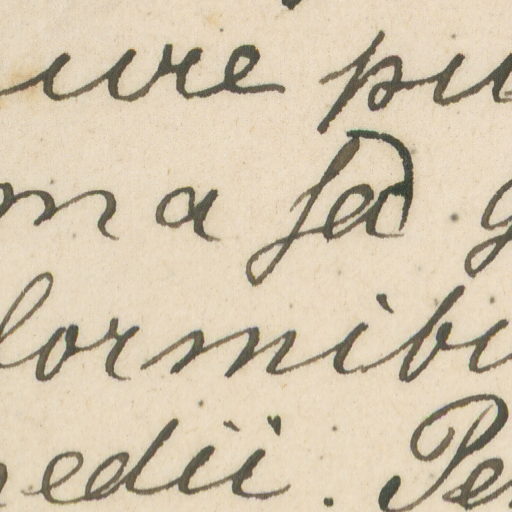 ure pu
ma sed g
formibu
edii. Pe